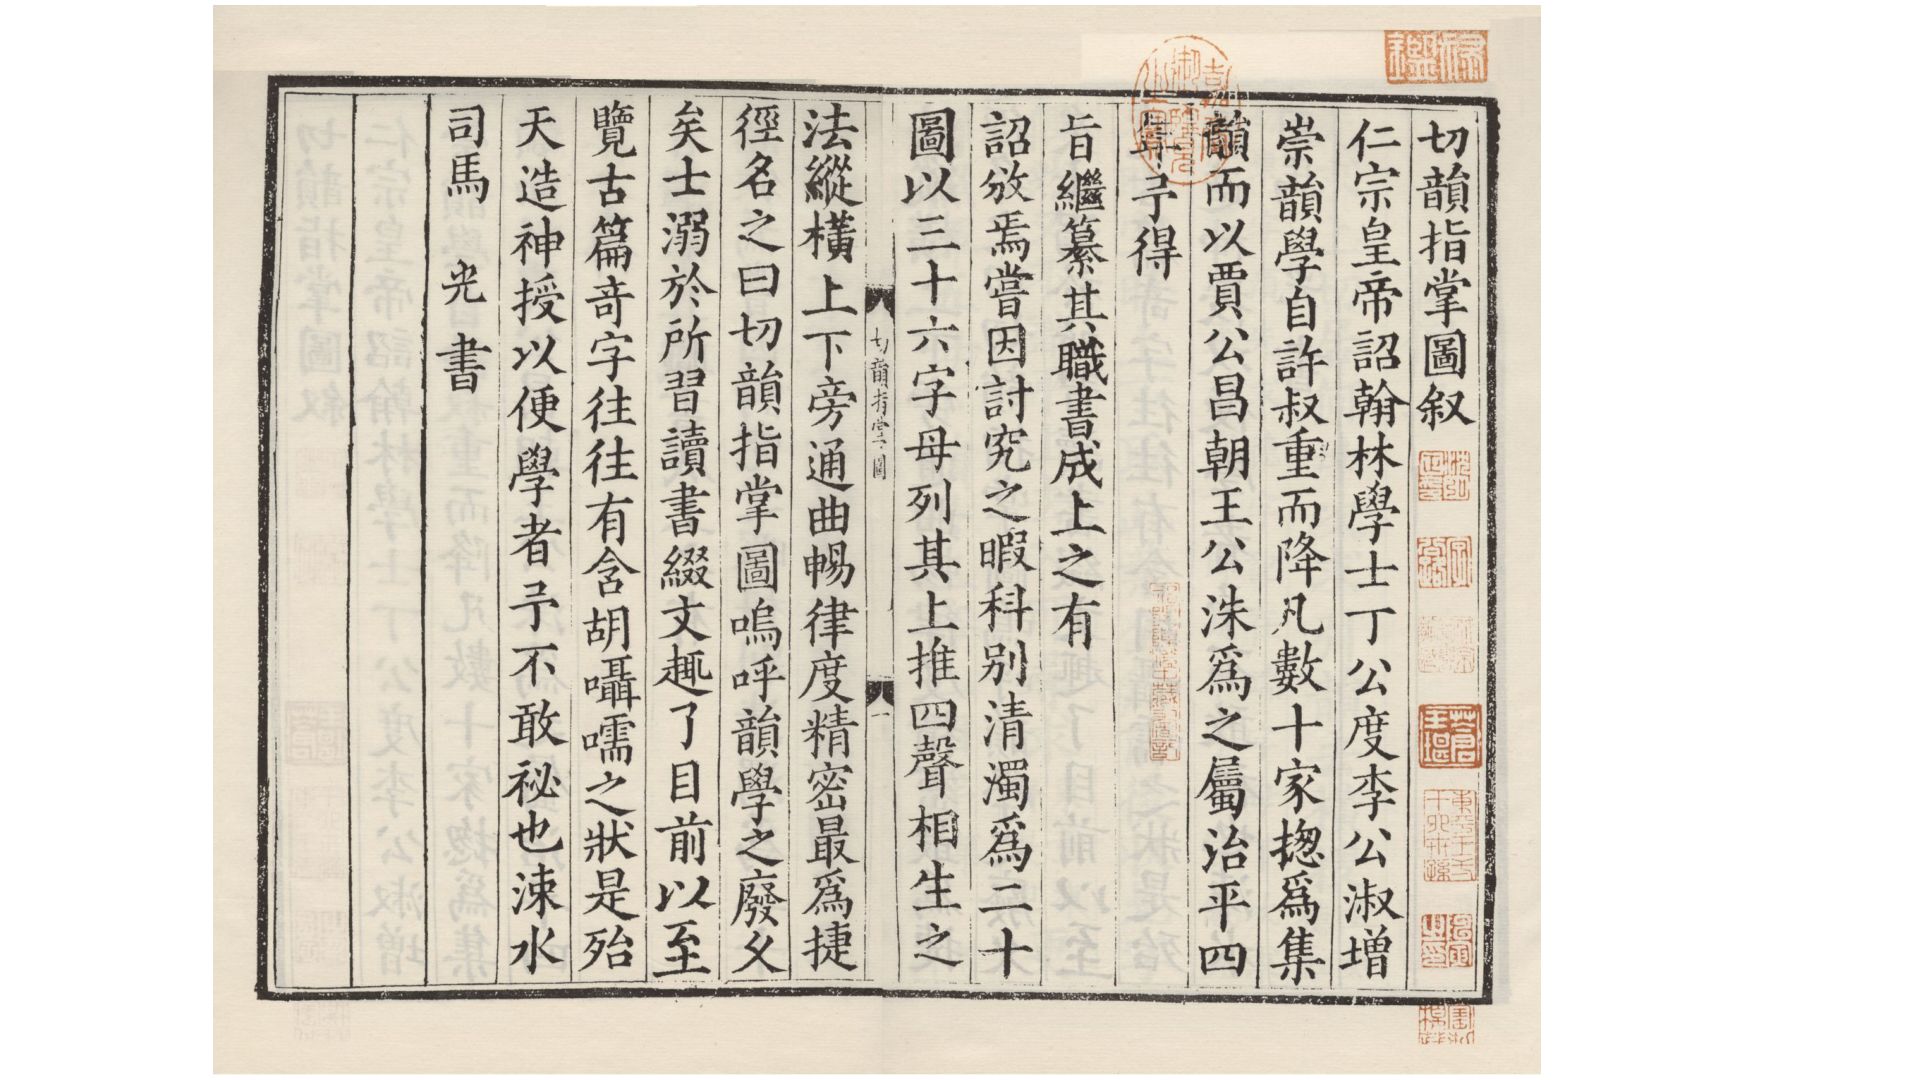 切韻指掌圖叙
仁宗皇帝詔翰林學士丁公度李公淑增
崇韻學自許叔重而降凡數十家揔爲集
韻而以賈公昌朝王公洙爲之屬治平四
年予得
旨繼纂其職書成上之有
詔攽焉嘗因討究之暇科别清濁爲二十
圖以三十六字母列其上推四聲相生之
切韻指掌圖
一
法縱橫上下旁通曲暢律度精密最爲捷
徑名之曰切韻指掌圖嗚呼韻學之廢乆
矣士溺於所習讀書綴文趣了目前以至
覽古篇奇字往往有含胡囁嚅之狀是殆
天造神授以便學者予不敢祕也涑水
司馬 光 書